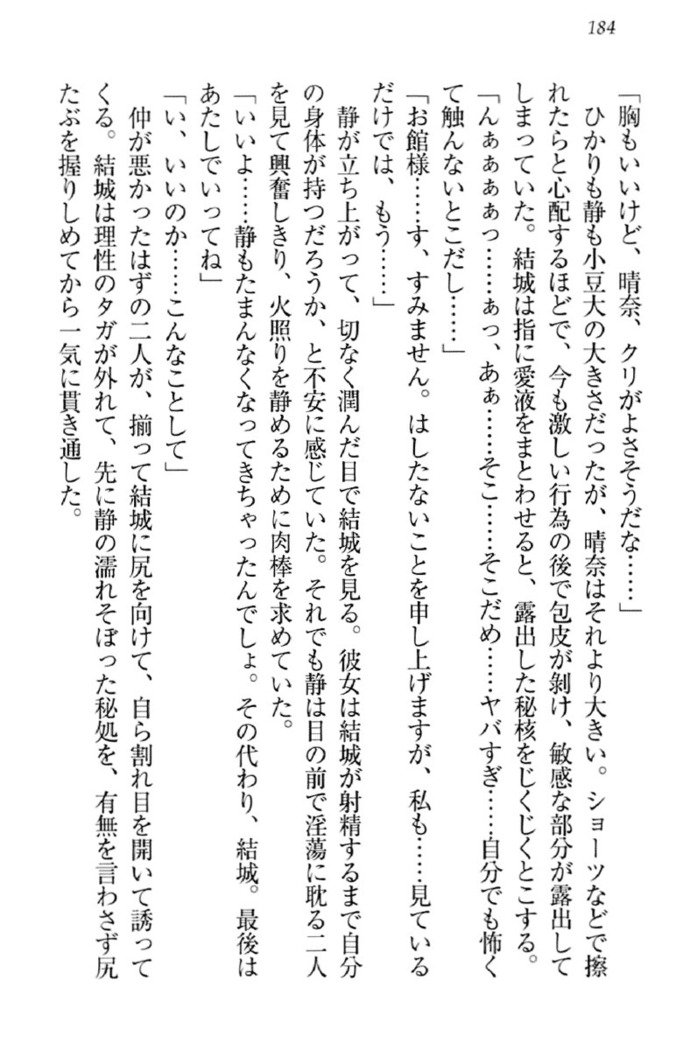 184
「胸もいいけど、晴奈、クリがよさそうだな……」
ひかりも静も小豆大の大きさだったが、晴奈はそれより大きい。ショーツなどで擦
れたらと心配するほどで、今も激しい行為の後で包皮が剥け、敏感な部分が露出して
しまっていた。結城は指に愛液をまとわせると、露出した秘核をじくじくとこする。
「んぁぁぁぁっ……ぁっ、あぁ……そこ……そこだめ……ヤバすぎ……自分でも怖く
て触んないとこだし……」
「お館様……す、すみません。はしたないことを申し上げますが、私も……見ている
だけでは、もう……」
静が立ち上がって、切なく潤んだ目で結城を見る。彼女は結城が射精するまで自分
の身体が持つだろうか、と不安に感じていた。それでも静は目の前で淫蕩に耽る二人
を見て興奮しきり、火照りを静めるために肉棒を求めていた。
「いいよ……静もたまんなくなってきちゃったんでしょ。その代わり、結城。最後は
あたしでいってね」
「い、いいのか……こんなことして」
仲が悪かったはずの二人が、揃って結城に尻を向けて、自ら割れ目を開いて誘って
くる。結城は理性のタガが外れて、先に静の濡れそぼった秘処を、有無を言わさず尻
たぶを握りしめてから一気に貫き通した。